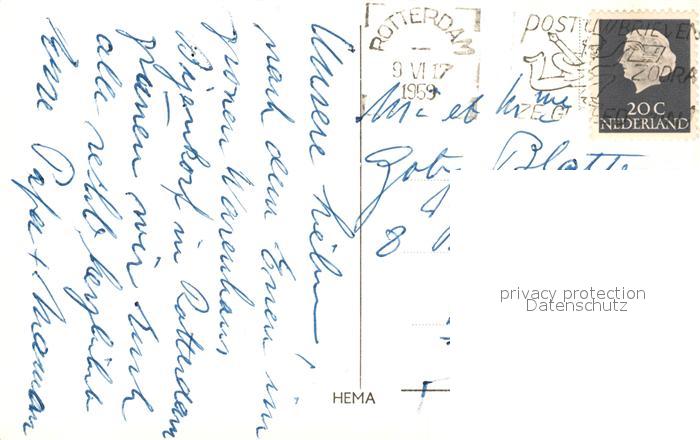 Unsere Lieben!
nach dem Essen im
grossen Warenhaus
Bijenkorf in Rotterdam
grüssen wir Euch
alle recht herzlich
Eure Papa + Maman
ROTTERDAM
9 VI 17
1959
POST UW BRIEVEN
ZODRA
ZE G
20 C
NEDERLAND
M. et Mme
Blatte
8
HEMA
privacy protection
Datenschutz